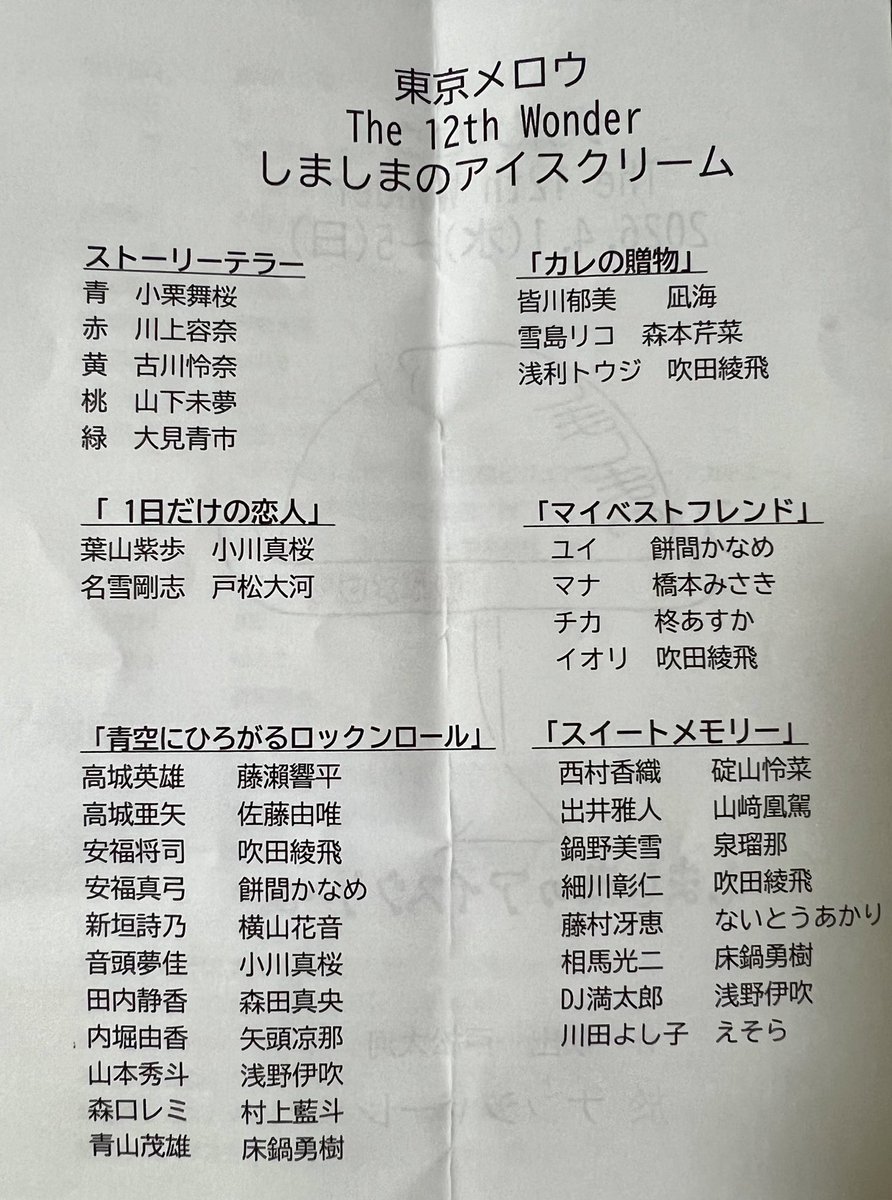 東京メロウ
The 12th Wonder
しましまのアイスクリーム
ストーリーテラー
青 小栗舞桜
赤 川上容奈
黄 古川怜奈
桃 山下未夢
緑 大見青市
「カレの贈物」
皆川郁美 凪海
雪島リコ 森本芹菜
浅利トウジ 吹田綾飛
「1日だけの恋人」
葉山紫歩 小川真桜
名雪剛志 戸松大河
「マイベストフレンド」
ユイ 餅間かなめ
マナ 橋本みさき
チカ 柊あすか
イオリ 吹田綾飛
「青空にひろがるロックンロール」
高城英雄 藤瀬響平
高城亜矢 佐藤由唯
安福将司 吹田綾飛
安福真弓 餅間かなめ
新垣詩乃 横山花音
音頭夢佳 小川真桜
田内静香 森田真央
内堀由香 矢頭凉那
山本秀斗 浅野伊吹
森口レミ 村上藍斗
青山茂雄 床鍋勇樹
「スイートメモリー」
西村香織 碇山怜菜
出井雅人 山﨑凰駕
鍋野美雪 泉瑠那
細川彰仁 吹田綾飛
藤村冴恵 ないとうあかり
相馬光二 床鍋勇樹
DJ満太郎 浅野伊吹
川田よし子 えそら